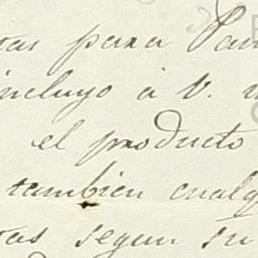 tas para Par
incluyo á V. u
el producto
tambien cualq
vas segun su